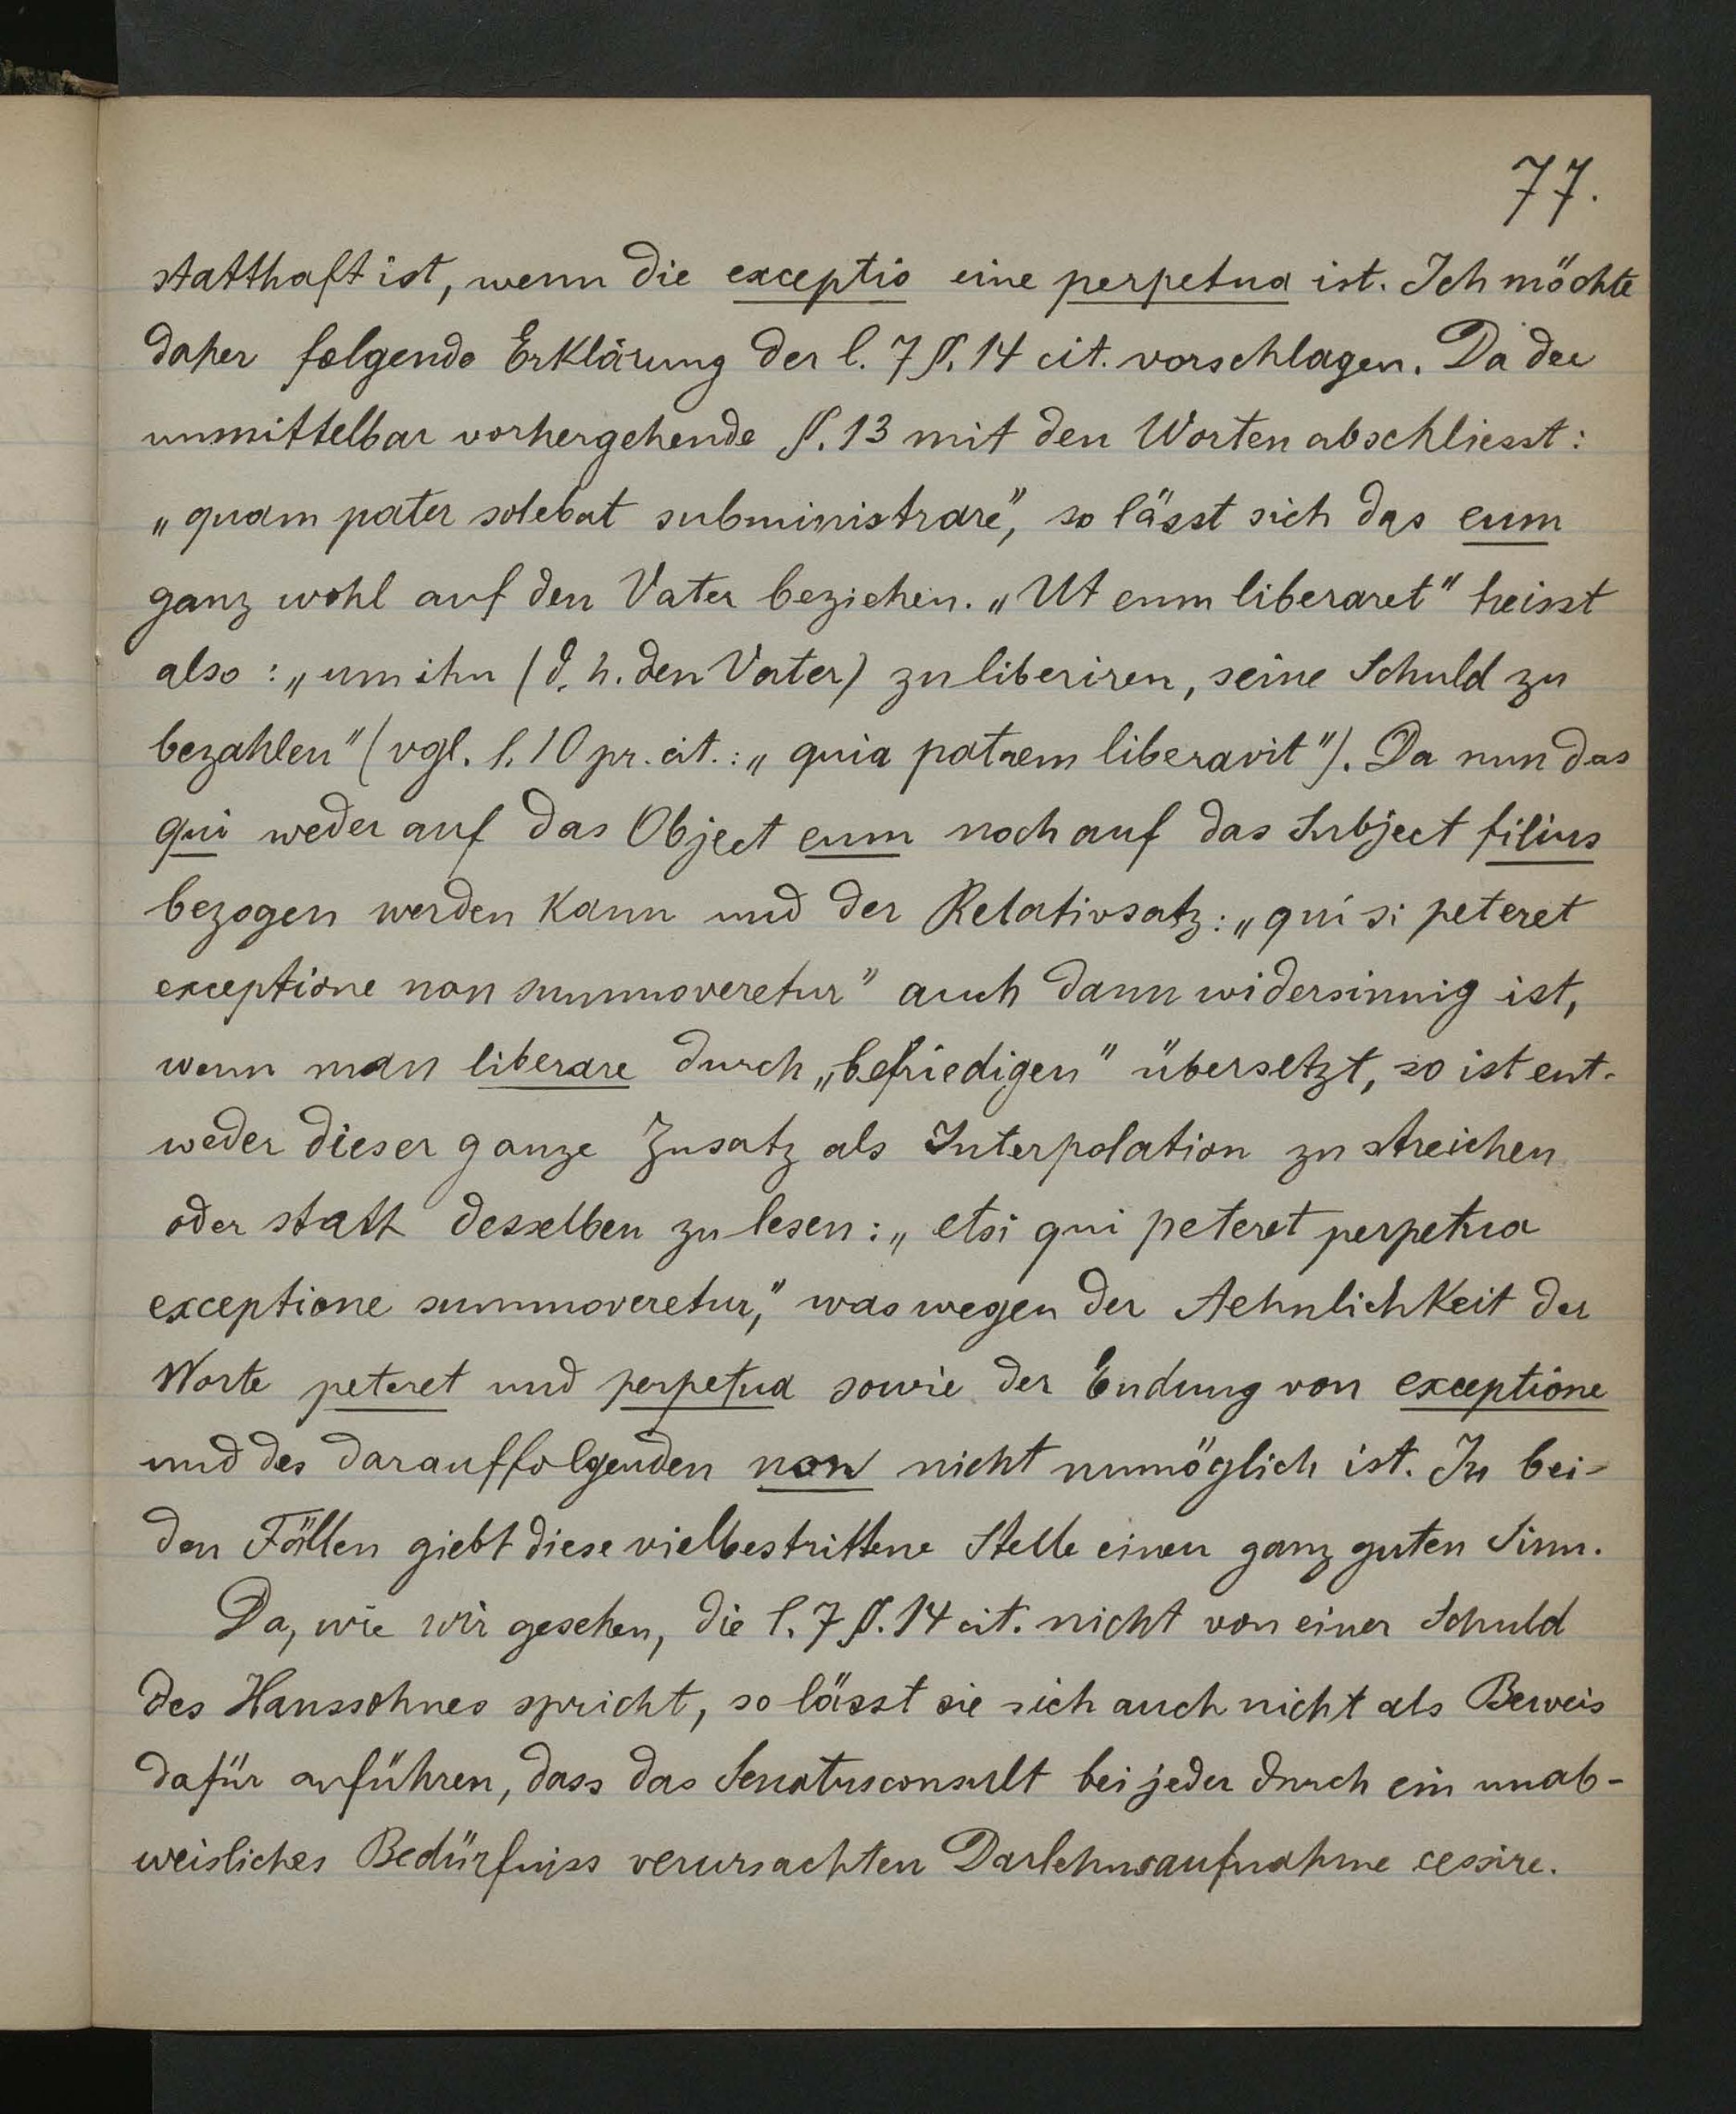 77.
statthaft ist, wenn die exceptio eine perpetua ist. Ich möchte
daher folgende Erklärung der l. 7 §. 14 cit. vorschlagen. Da der
unmittelbar vorhergehende §. 13 mit den Worten abschliesst:
„quam pater solebat subministrare“, so lässt sich das eum
ganz wohl auf den Vater beziehen. „Ut eum liberaret“ heisst
also: „um ihn (d. h. den Vater) zu liberiren, seine Schuld zu
bezahlen“ (vgl. l. 10 pr. cit.: „quia patrem liberavit“). Da nun das
qui weder auf das Object eum noch auf das Subject filius
bezogen werden kann und der Relativsatz: „qui si peteret
exceptione non summoveretur“ auch dann widersinnig ist,
wenn man liberare durch „befriedigen“ übersetzt, so ist ent-
weder dieser ganze Zusatz als Interpolation zu streichen
oder statt desselben zu lesen: „etsi qui peteret perpetua
exceptione summoveretur,“ was wegen der Aehnlichkeit der
Worte peteret und perpetua sowie der Endung von exceptione
und des darauffolgenden non nicht unmöglich ist. In bei-
den Fällen giebt diese vielbestrittene Stelle einen ganz guten Sinn.
Da, wie wir gesehen, die l. 7 §. 14 cit. nicht von einer Schuld
des Haussohnes spricht, so lässt sie sich auch nicht als Beweis
dafür anführen, dass das Senatusconsult bei jeder durch ein unab-
weisliches Bedürfniss verursachten Darlehnsaufnahme cessire.